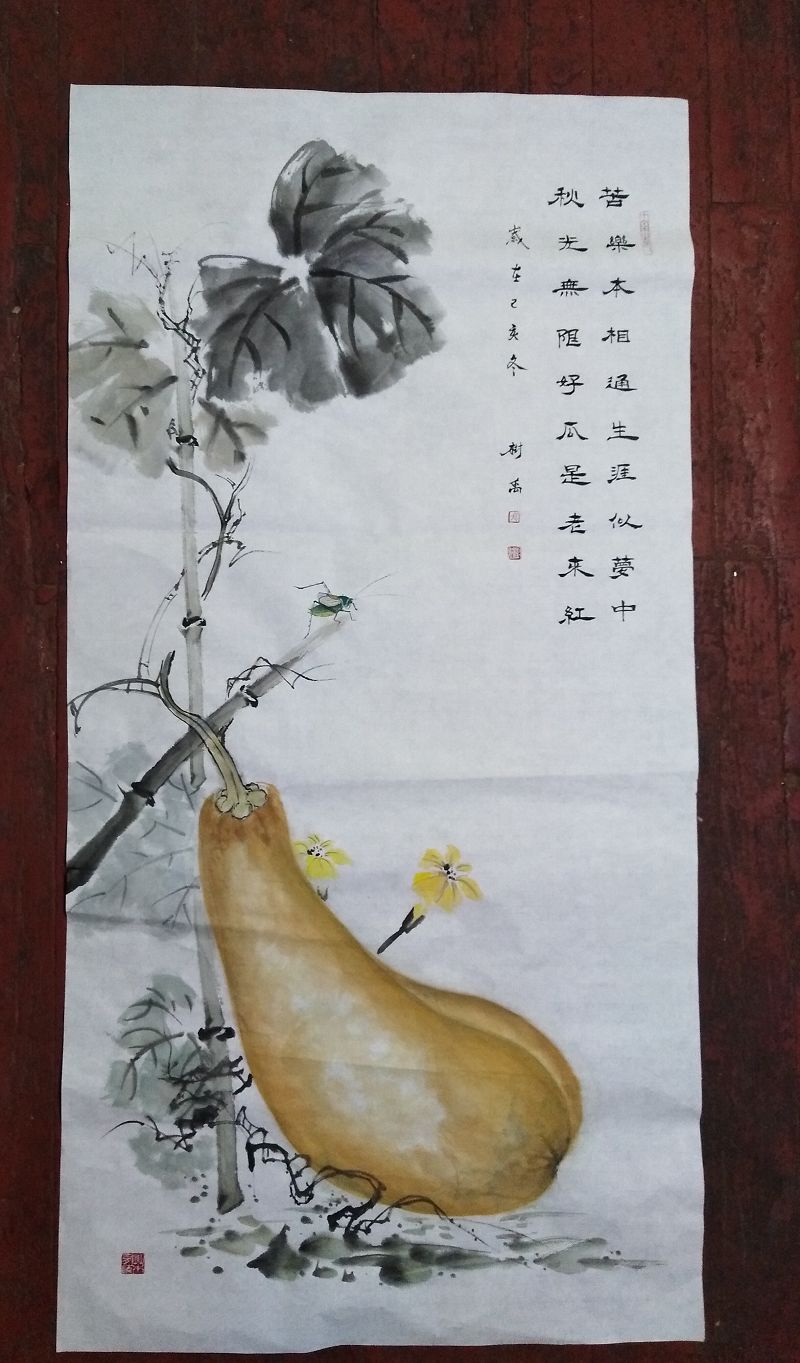 苦樂本相通生涯似夢中
秋光無限好瓜是老來紅
歲在己亥冬 樹禹